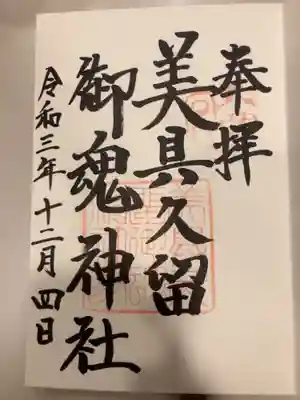 奉拝
美具久留
御魂神社
令和三年十二月四日